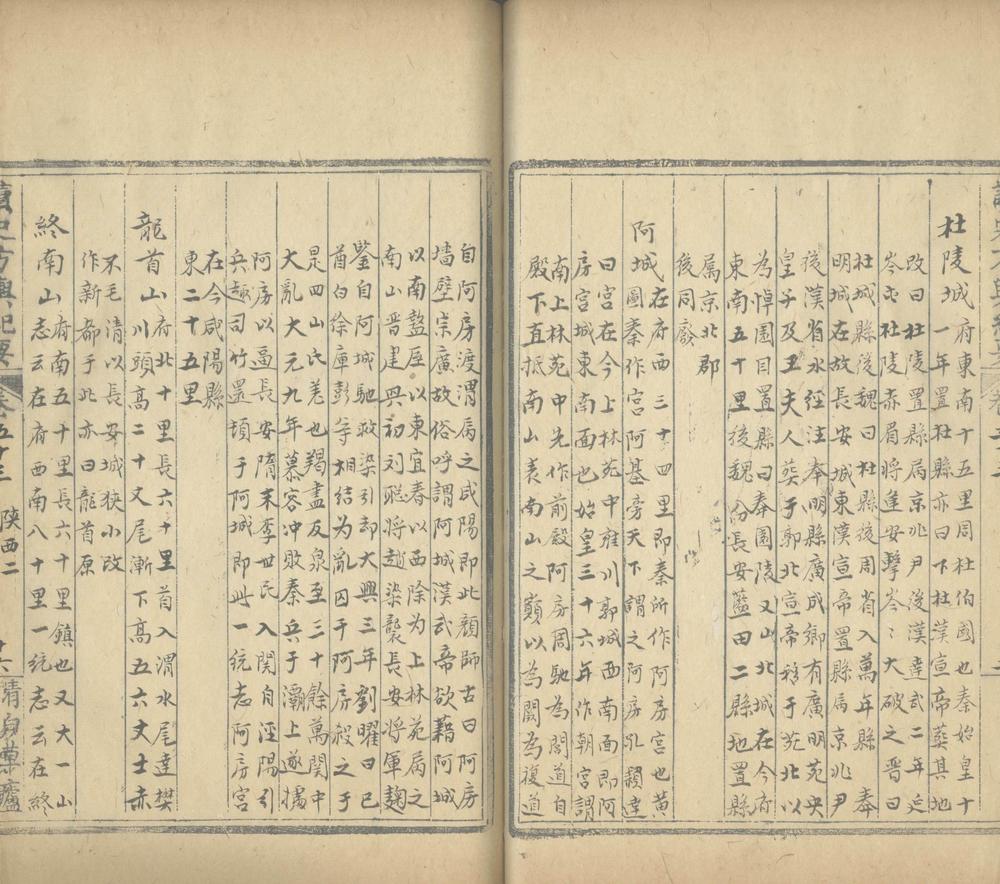 杜陵城府東南十五里周杜伯國也秦始皇十
一年置杜縣亦曰下杜漢宣帝葬其地
改曰杜陵置縣屬京兆尹後漢建武二年延
岑屯杜陵赤眉將逢安擊岑〻大破之晋曰
杜城縣後魏曰杜縣後周省入萬年縣 奉
明城在故長安城東漢宣帝置縣屬京兆尹
後漢省水經注奉明縣廣成鄉有廣明苑央
皇子及王夫人葬于郭北宣帝移于苑北以
為悼園目置縣曰奉園陵又山北城在今府
東南五十里後魏份長安藍田二縣地置縣
屬京北郡
後同廢
阿城在府西三十四里即秦所作阿房宮也黄
圖秦作宮阿基旁天下謂之阿房孔穎達
曰宮在今上林苑中雍川郭城西南面即阿
房宮城東南面也始皇三十六年作朝宮謂
南上林苑中先作前殿阿房周馳為閣道自
殿下直抵南山表南山之巔以為闕為複道
自阿房渡渭屬之咸陽即此顔師古曰阿房
墻壁崇廣故俗呼謂阿城漢武帝欲藉阿城
以南盩厔以東宜春以西除为上林苑屬之
南山晋建興初刘聡將趙染襲長安將軍麹
鑒自阿城馳救染引却大興三年劉曜曰已
酋句徐庫彭等相结为亂囚于阿房殺之于
是四山氏羌也羯盡反泉至三十餘萬関中
大亂大元九年慕容冲敗秦兵于灞上遂據
阿房以逼長安隋末李世民入関自涇陽引
兵趣司竹置頓于阿城即此一統志阿房宮
在今咸陽縣
東二十五里
龍首山府北十里長六十里首入渭水尾達樊
川頭高二十丈尾漸下高五六丈士赤
不毛清以長安城狭小改
作新都于此亦曰龍首原
終南山府南五十里長六十里鎮也又大一山
志云在府西南八十里一統志云在終
讀史方輿紀要 卷五十三 陕西二 十六